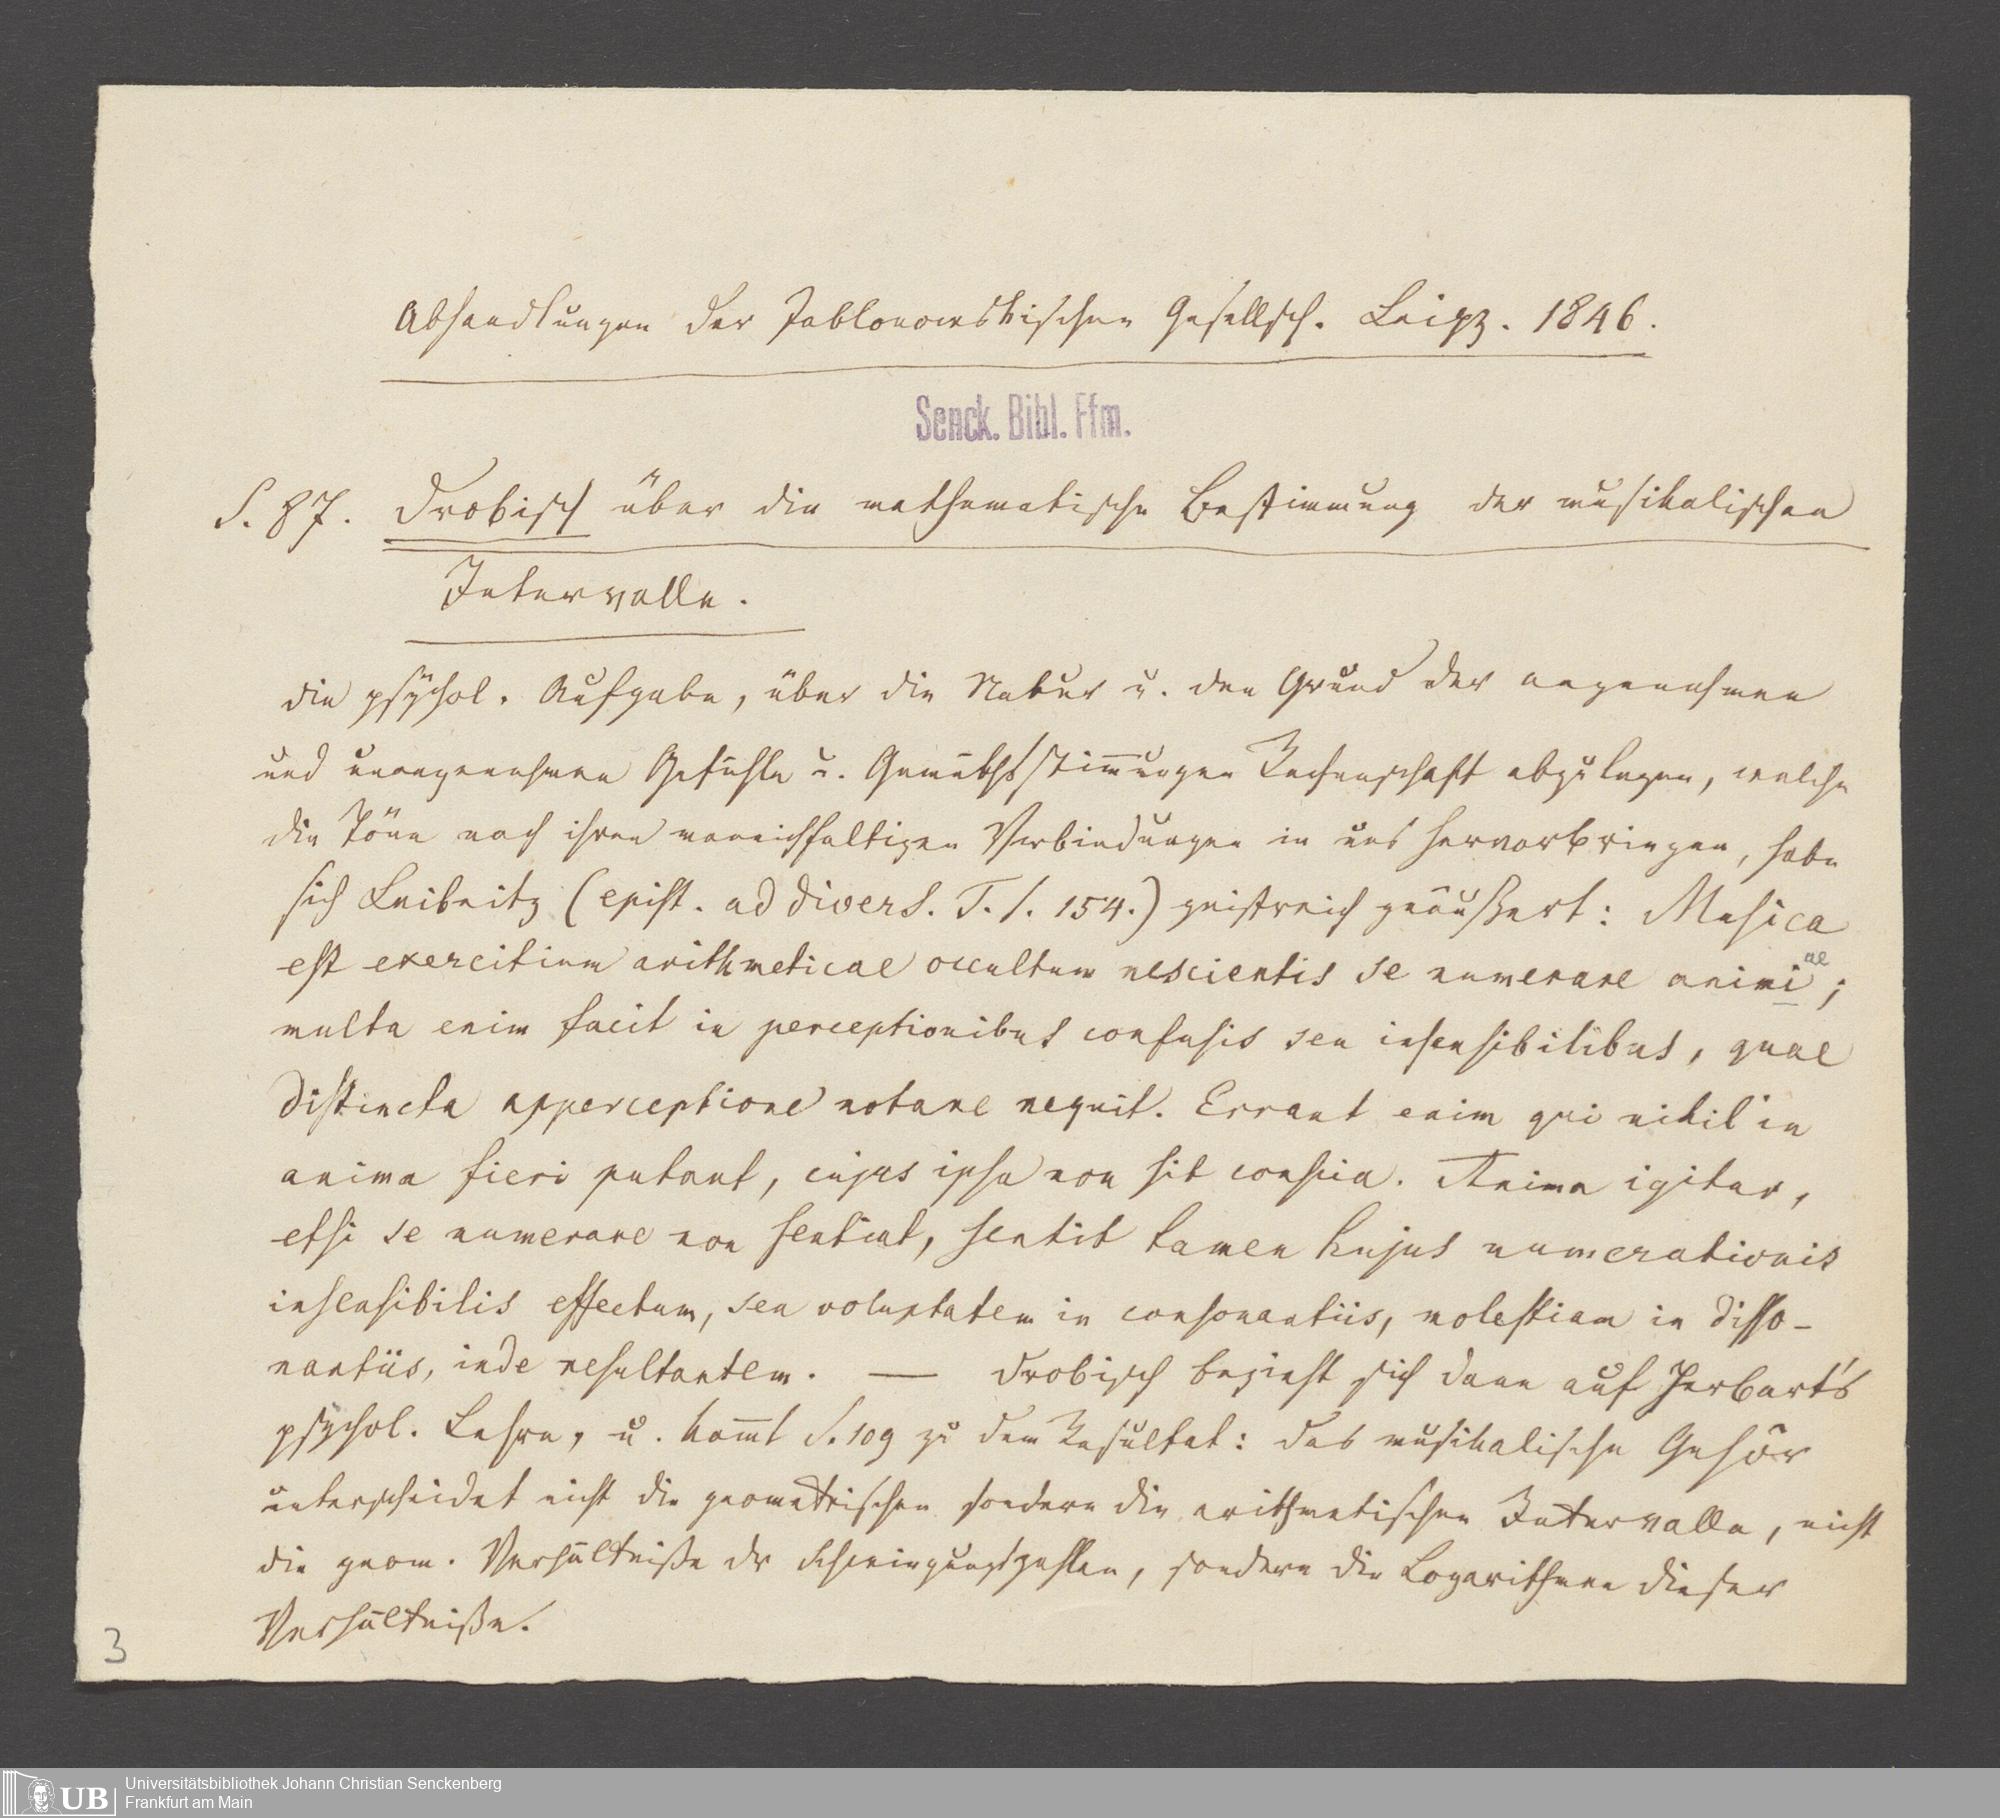 Abhandlungen der Jablonowskischen Gesellsch. Leipz. 1846.
Senck. Bibl. Ffm.
S. 87. Drobisch über die mathematische Bestimmung der musikalischen
Intervalle.
die psychol. Aufgabe, über die Natur u. den Grund der angenehmen
und unangenehmen Gefühle u. Gemüthsstim̄ungen Rechenschaft abzulegen, welche
die Töne nach ihren manichfaltigen Verbindungen in uns hervorbringen, habe
sich Leibnitz (epist. ad divers. T. 1. 154.) geistreich geäußert: Musica
est exercitium arithmeticae occultum nescientis se numerare animi ae;
multa enim facit in perceptionibus confusis seu insensibilibus, quae
distincta apperceptione notare nequit. Errant enim qui nihil in
anima fieri putant, cujus ipsa non sit conscia. Anima igitur,
etsi se numerare non sentiat, sentit tamen hujus numerationis
insensibilis effectum, seu voluptatem in consonantiis, molestiam in disso-
nantiis, inde resultantem. — Drobisch bezieht sich dann auf Herbart's
psychol. Lehre, u. kom̄t S. 109 zu dem Resultat: das musikalische Gehör
unterscheidet nicht die geometrischen sondern die arithmetischen Intervalle, nicht
die geom. Verhältniße dr Schwingungszahlen, sondern die Logarithmen dieser
Verhältniße.
3
UB
Universitätsbibliothek Johann Christian Senckenberg
Frankfurt am Main